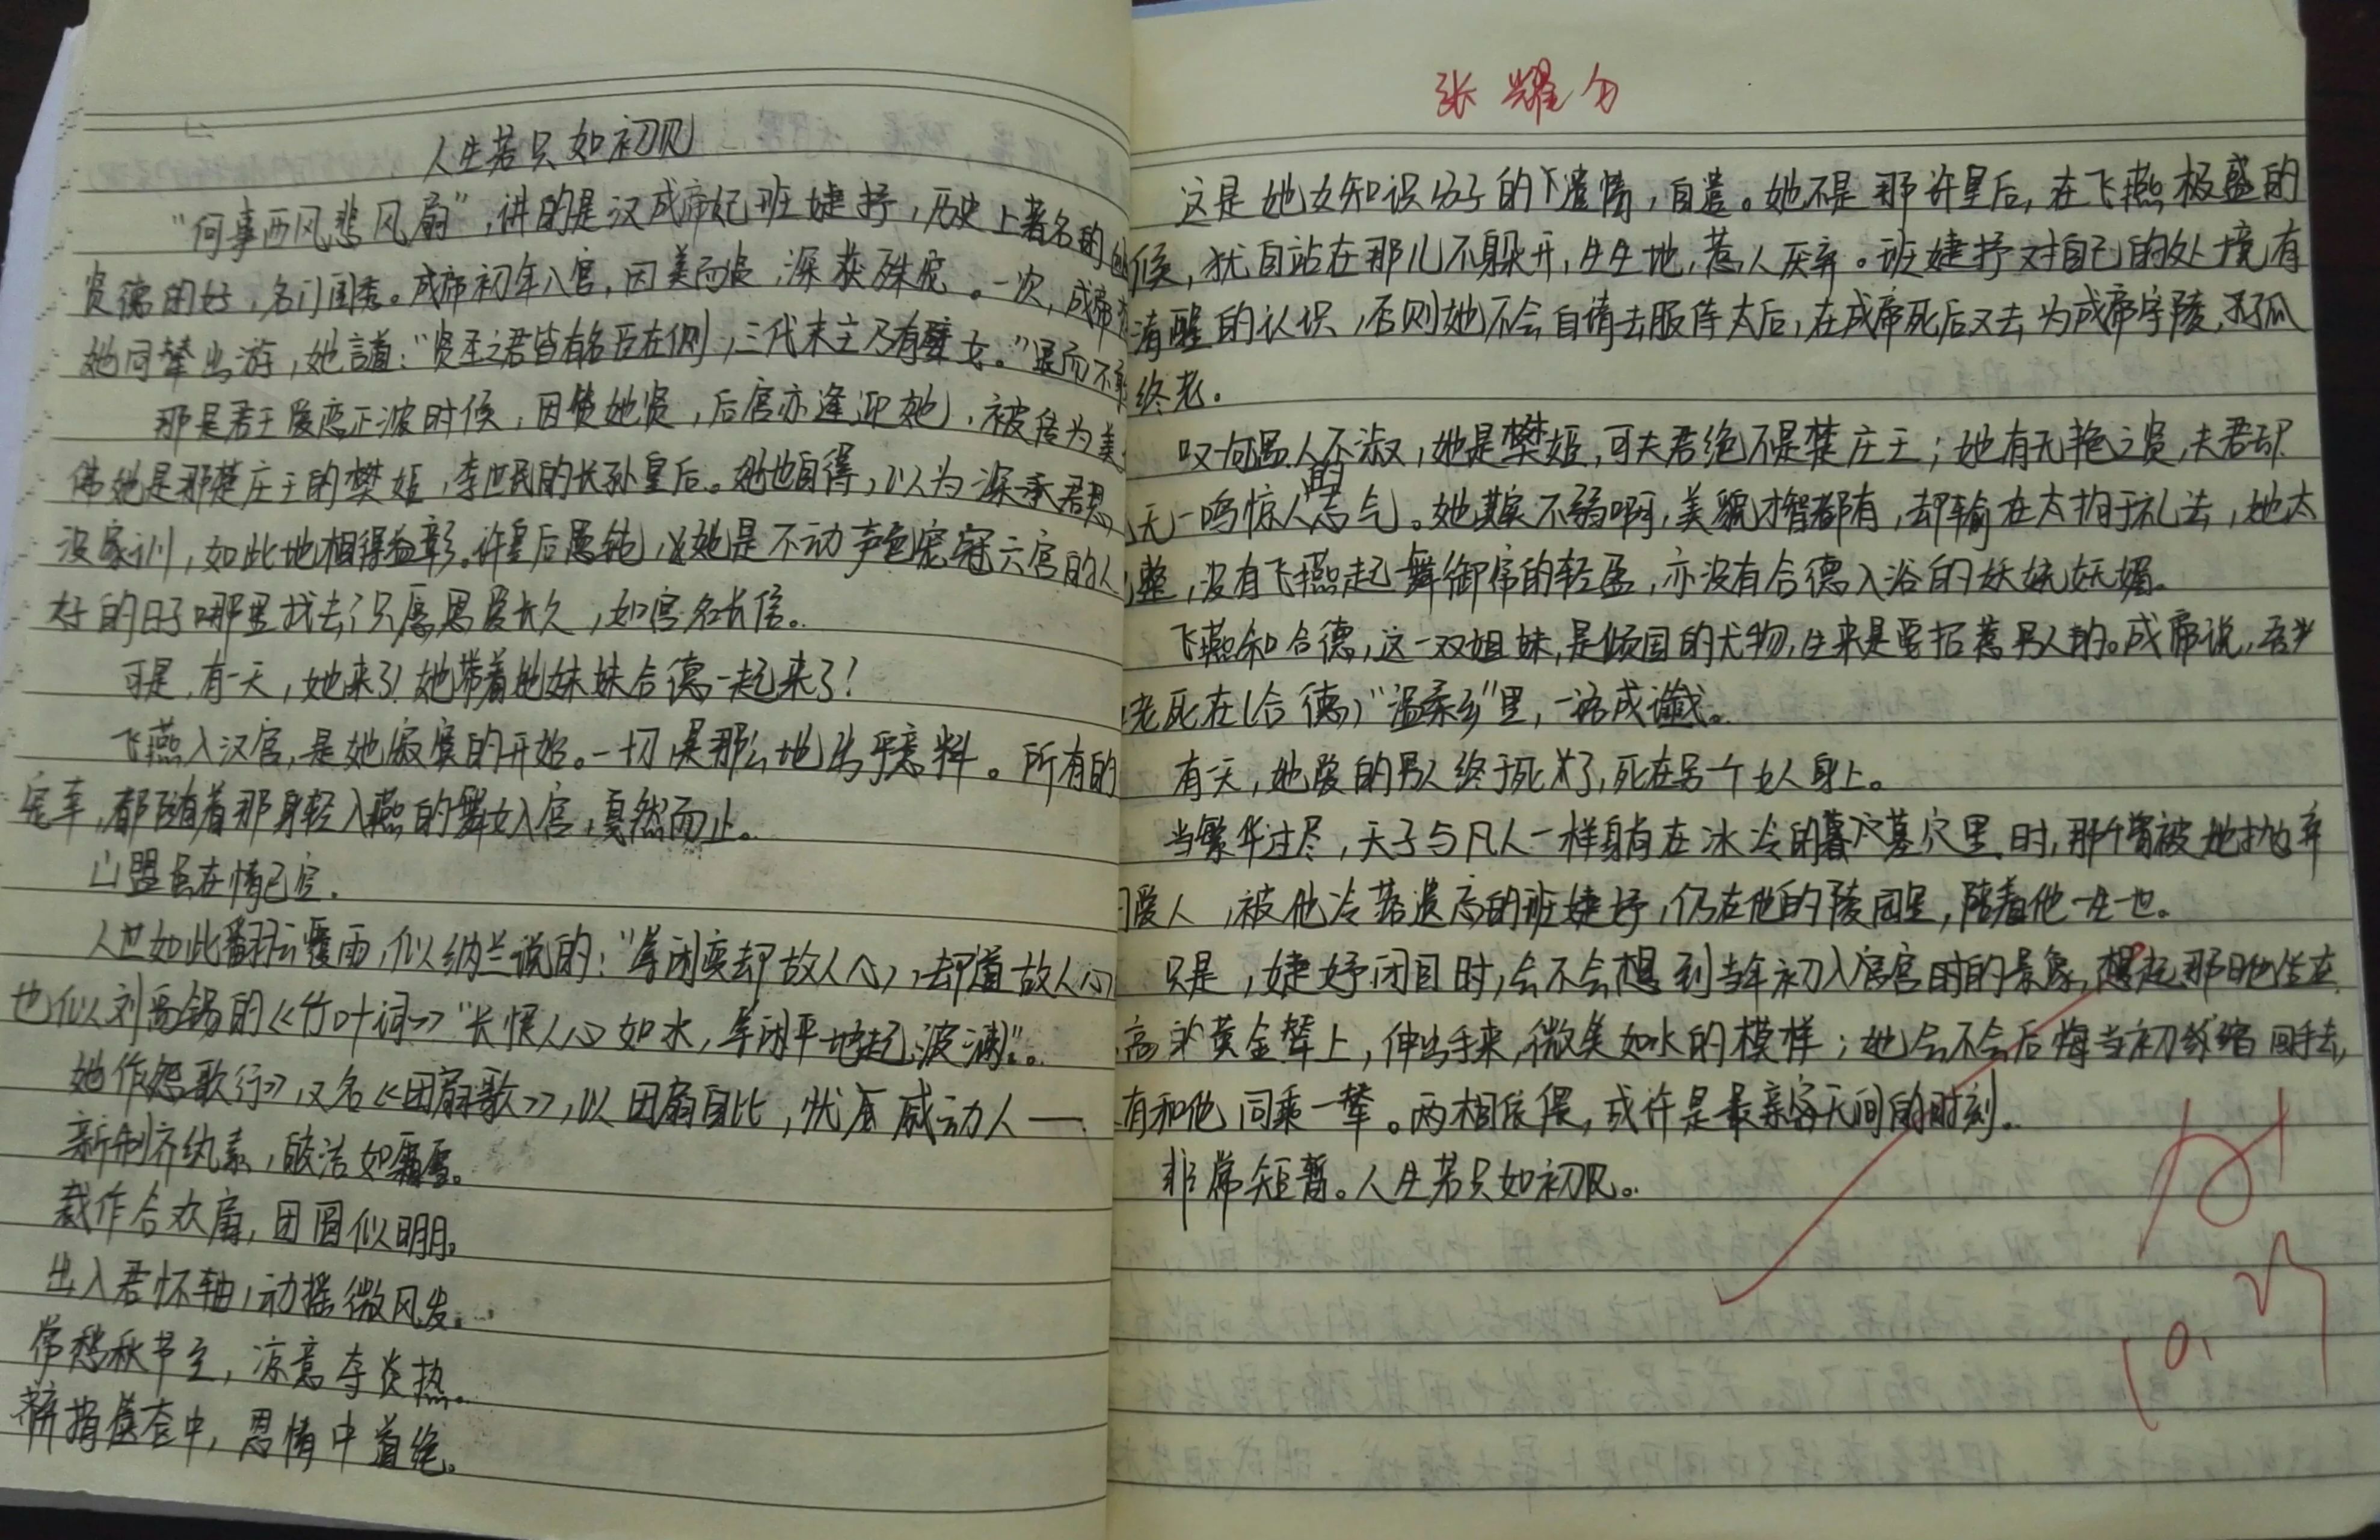 人生若只如初见
"何事西风悲风扇",讲的是汉成帝妃班婕妤,历史上著名的
贤德的妃,名门闺秀。成帝初年入宫,因美而贤,深获殊宠。一次,成帝
她同辇出游,她言道:"贤圣之君皆有名臣在侧,三代末主乃有嬖女。"
那是君王爱恋正浓时候,因赞她贤,后宫亦逢迎她,被传为美
佛她是那楚庄王的樊姬,李世民的长孙皇后。她也自得,以为深承君恩
没家训,如此地相得益彰。许皇后愚钝,她是不动声色宠冠六宫的人
好的日子哪里找去?只愿恩爱长久,如宫名长信。
可是,有一天,她来了!她带着她妹妹合德一起来了!
飞燕入汉宫,是她寂寞的开始。一切是那么地出乎意料。所有的
宠幸,都随着那身轻入燕的舞女入宫,戛然而止。
山盟虽在情已空。
人世如此翻云覆雨,似纳兰说的:"等闲变却故人心,却道故人心
也似刘禹锡的《竹叶词》"长恨人心如水,等闲平地起波澜"。
她作怨歌行》又名《团扇歌》,以团扇自比,忧凄感动人——
新制齐纨素,皎洁如霜雪。
裁作合欢扇,团圆似明月。
出入君怀轴,动摇微风发。
常愁秋节至,凉意夺炎热。
弃捐箧奁中,恩情中道绝。
张耀
这是她女知识分子的下遣情,自遣。她不是那许皇后,在飞燕极盛的
候,犹自站在那儿不躲开,生生地,惹人厌弃。班婕妤对自己的处境有
清醒的认识,否则她不会自请去服侍太后,在成帝死后又去为成帝守陵,孤
终老。
叹何遇人不淑,她是樊姬,可夫君绝不是楚庄王;她有无艳之贤,夫君却
无一鸣惊人的志气。她其实不弱啊,美貌才智都有,却输在太拘于礼法,她太
整,没有飞燕起舞御前的轻盈,亦没有合德入浴的妖娆妩媚。
飞燕和合德,这一双姐妹,是倾国的尤物,生来是要招惹男人的。成帝说,吾当
老死在(合德)"温柔乡"里,一语成谶。
有天,她爱的男人终于死了,死在另个女人身上。
当繁华过尽,天子与凡人一样躺在冰冷的墓穴里时,那个曾被她抛弃
爱人,被他冷落遗忘的班婕妤,仍在他的陵园里,陪着他一生一世。
只是,婕妤闭目时,会不会想到当年初入宫宫时的景象,想起那日他坐在
高的黄金辇上,伸出手来,微笑如水的模样;她会不会后悔当初缩回手去,
有和他同乘一辇。两相依偎,或许是最亲密无间的时刻。
非常短暂。人生若只如初见。
10.